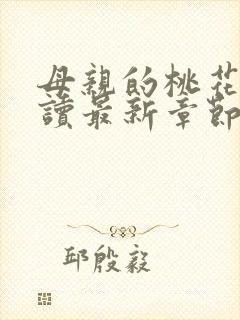 母親的桃花
讀最新章節
邱殷毅